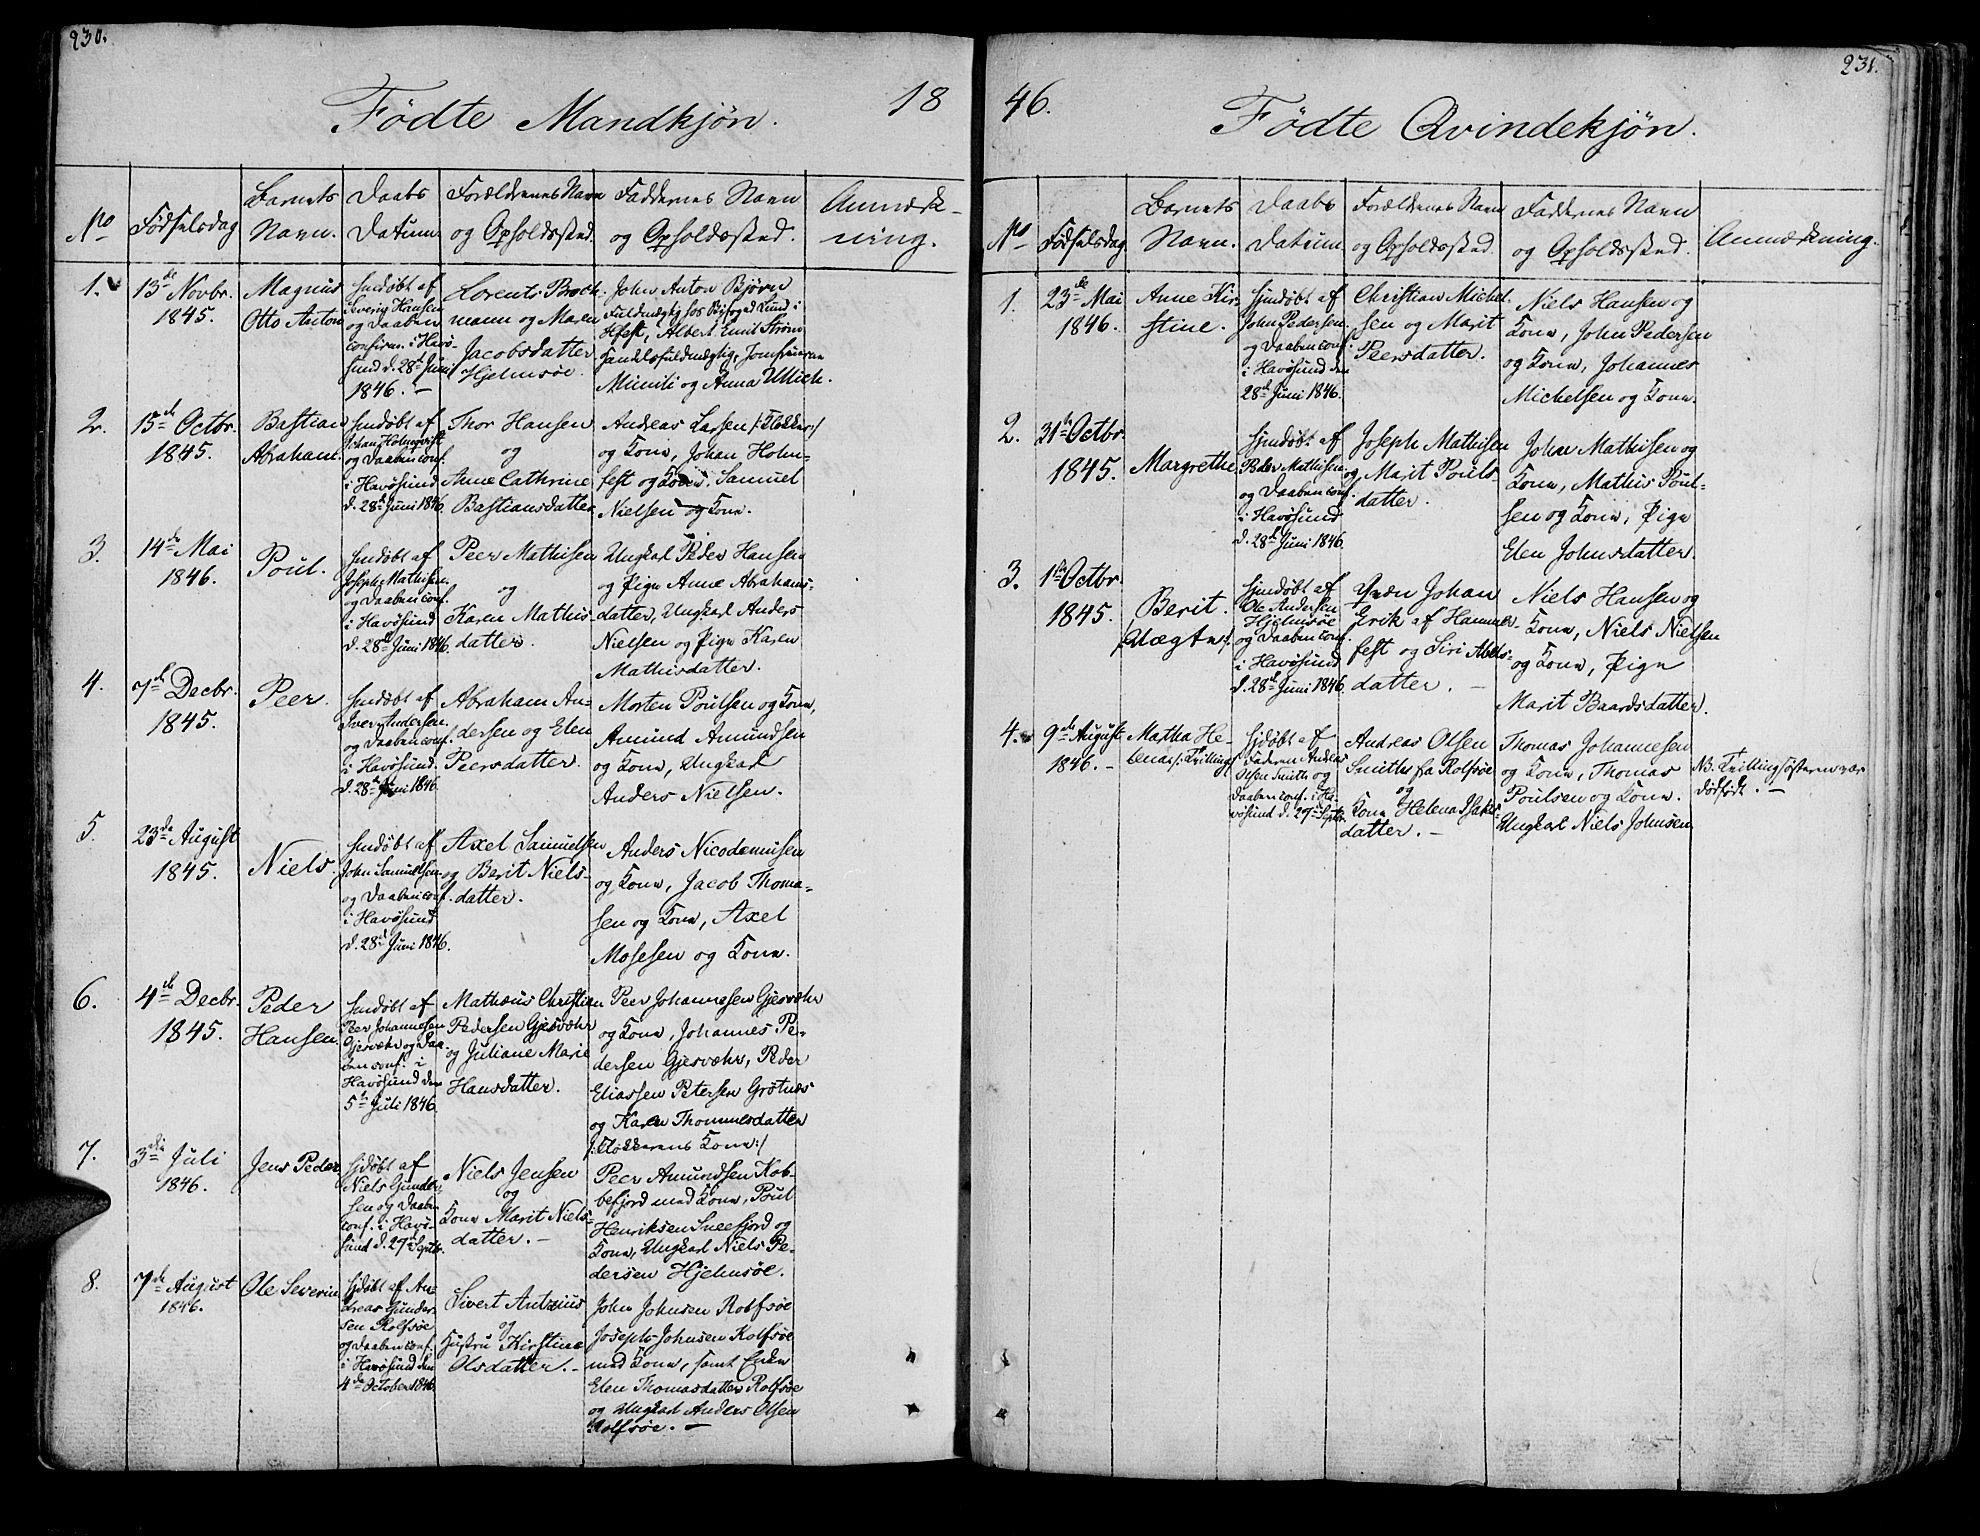 230.
Fødte Mandkjøn.
18
No
Fødselsdag
Barnets
Navn.
Daabs
Datum
Forældrenes Navn
og Opholdssted.
Faddernes Navn
og Opholdssted.
Anmærk-
ning.
1.
13de Novbr.
1845.
Magnus
Otto Anton
hmdøbt af
Sverig Hansen
og Daaben
confirm. i Havø-
sund d. 28de Juni
1846. –
Lorents Broch-
mann og Maren
Jacobsdatter
Hjelmsøe.
John Anton Bjørn
Fuldmægtig hos Byfoged Lund i
Hfest, Albert Emil Strøm
Handelsfuldmægtig, Jomfruerne
Mimili og Anna Ullich.
2.
15de Octbr.
1845.
Bastian
Abraham.
hmdøbt af
Johan Holmqvist
og Daaben conf.
i Havøsund
d. 28de Juni 1846.
Thor Hansen
og
Anne Cathrine
Bastiansdatter
Andreas Larsen /:Klokker:/
og Kone, Johan Holm-
fest og Kone. Samuel
Nielsen og Kone.
3.
14de Mai
1846.
Poul.
hmdøbt af
Joseph Mathisen
og Daaben conf.
i Havøsund
d. 28de Juni 1846.
Peer Mathisen
og
Karen Mathis-
datter.
Ungkarl Peder Hansen
og Pige Anne Abrahams-
datter, Ungkarl Anders
Nielsen og Pige Karen
Mathisdatter.
4.
7de Decbr.
1845.
Peer.
hmdøbt af
Iver Andersen
og Daaben conf.
i Havøsund
d. 28de Juni 1846.
Abraham An-
dersen og Elen
Peersdatter.
Morten Poulsen og Kone,
Amund Amundsen
og Kone, Ungkarl
Anders Nielsen.
5.
23de August
1845.
Niels.
hmdøbt af
John Samuelsen
og Daaben conf.
i Havøsund
d. 28de Juni 1846.
Axel Samuelsen
og Berit Niels-
datter.
Anders Nicodemusen
og Kone, Jacob Thoma-
sen og Kone, Axel
Mosesen og Kone.
6.
4de Decbr.
1845.
Peder
Hansen.
hmdøbt af
Peer Johannesen
Gjesvær og Daa-
ben conf. i
Havøsund den
5te Juli 1846
Mathæus Christian
Pedersen Gjesvæhr
og Juliane Marie
Hansdatter.
Peer Johannesen Gjesvæhr
og Kone, Johannes Pe-
dersen Gjesvæhr, Peder
Eliassen Petersen Grøtnæs
og Karen Thommesdatter
/:Klokkerens Kone:/
7.
3die Juli
1846.
Jens Peder
hjdøbt af
Niels Gunder-
sen og Daaben
conf. i Havø-
sund d. 27de Septbr.
Niels Jensen
og
Kone Marit Niels-
datter. –
Peer Amundsen Kob-
befjord med Kone, Poul
Henriksen Sneefjord og
Kone, Ungkarl Niels Pe-
dersen Hjelmsøe.
8.
7de August
1846.
Ole Severin
hjdøbt af An-
dreas Gunder-
sen Rolfsøe
og Daaben conf.
i Havøsund den
4de October 1846
Sivert Antonius
og
Hustru Kirstine
Olsdatter. –
John Johnsen Rolfsøe
Joseph Johnsen Rolfsøe
med Kone, samt Enke
Elen Thomasdatter Rolfsøe
og Ungkarl Anders Olsen
Rolfsøe. –
231.
46.
Fødte Qvindekjøn.
No
Fødselsdag
Barnets
Navn.
Daabs
Datum
Forældrenes Navn
og Opholdssted
Faddernes Navn
og Opholdssted.
Anmærkning.
1.
23de Mai
1846.
Anne Kir-
stine.
hjmdøbt af
John Pedersen
og Daaben conf.
i Havøsund den
28de Juni 1846.
Christian Michel-
sen og Marit
Peersdatter.
Niels Hansen og
Kone, John Pedersen
og Kone, Johannes
Michelsen og Kone.
2.
31te Octbr.
1845.
Margrethe
hjmdøbt af
Peder Mathisen
og Daaben conf.
i Havøsund
d. 28de Juni 1846.
Joseph Mathisen
og Marit Pouls-
datter.
Johan Mathisen og
Kone, Mathis Poul-
sen og Kone, Pige
Elen Johnsdatter.
3.
1ste Octbr.
1845.
Berit.
/Uægte/.
hjmdøbt af
Ole Andersen
Hjelmsøe
og Daaben conf.
i Havøsund
d. 28de Juni 1846.
Johan
Erik af Hammer-
fest og Siri Abels-
datter. –
Niels Hansen og
Kone, Niels Nielsen
og Kone, Pige
Marit Baardsdatter.
4.
9de August
1846. –
Martha He-
lena /:Tvilling/
hjdøbt af
Faderen Andreas
Olsen Smith og
Daaben conf. i Ha-
vøsund d. 27de Septbr.
Andreas Olsen
Smith fra Rolfsøe
og
Kone Helena Isaks-
datter. –
Thomas Johannesen
og Kone, Thomas
Poulsen og Kone.
Ungkarl Niels Johnsen
NB. Tvillingsøsteren var
dødfødt. –